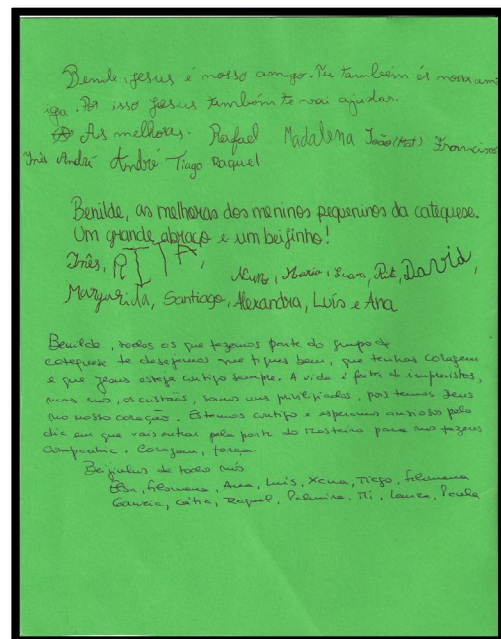 Benilde, Jesus é nosso amigo. Tu também és nossa am
iga. Por isso Jesus também te vai ajudar.
As melhoras. Rafael Madalena João (Mat) Francisco
Inês André André Tiago Raquel
Benilde, as melhoras dos meninos pequeninos da catequese.
Um grande abraço e um beijinho!
Inês, RITA,
Nuno, Maria, Luana, Rit, David,
Margarida, Santiago, Alexandra, Luís e Ana
Benilde, todos os que fazemos parte do grupo de
catequese te desejamos que fiques bem, que tenhas coragem
e que Jesus esteja contigo sempre. A vida é feita de imprevistos,
mas nós, os cristãos, somos uns privilegiados, pois temos Deus
no nosso coração. Estamos contigo e esperamos ansiosos pelo
dia em que vais entrar pela porta do Mosteiro para nos fazeres
companhia. Coragem, força.
Beijinhos de todos nós
Elsa, Filomena, Ana, Luís, Xana, Tiago, Filomena
Garcia, Cátia, Raquel, Palmira, Ti, Laura, Paula